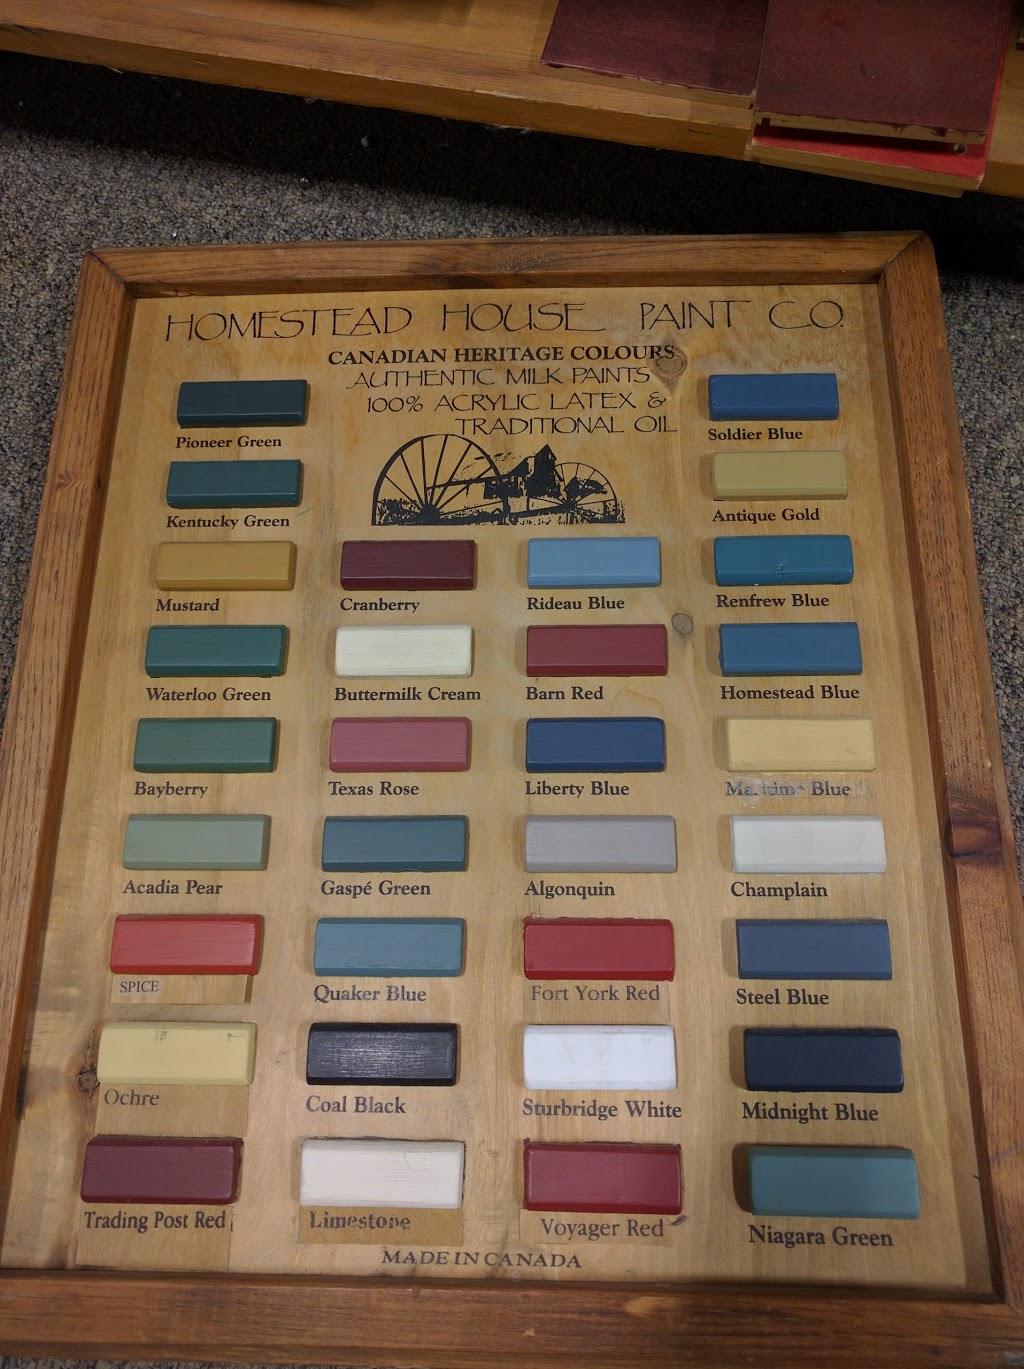 HOMESTEAD HOUSE PAINT CO.
CANADIAN HERITAGE COLOURS
AUTHENTIC MILK PAINTS
100% ACRYLIC LATEX &
TRADITIONAL OIL
Pioneer Green
Soldier Blue
Kentucky Green
Antique Gold
Mustard
Cranberry
Rideau Blue
Renfrew Blue
Waterloo Green
Buttermilk Cream
Barn Red
Homestead Blue
Bayberry
Texas Rose
Liberty Blue
Blue
Acadia Pear
Gaspé Green
Algonquin
Champlain
SPICE
Quaker Blue
Fort York Red
Steel Blue
Ochre
Coal Black
Sturbridge White
Midnight Blue
Trading Post Red
Limestone
Voyager Red
Niagara Green
MADE IN CANADA